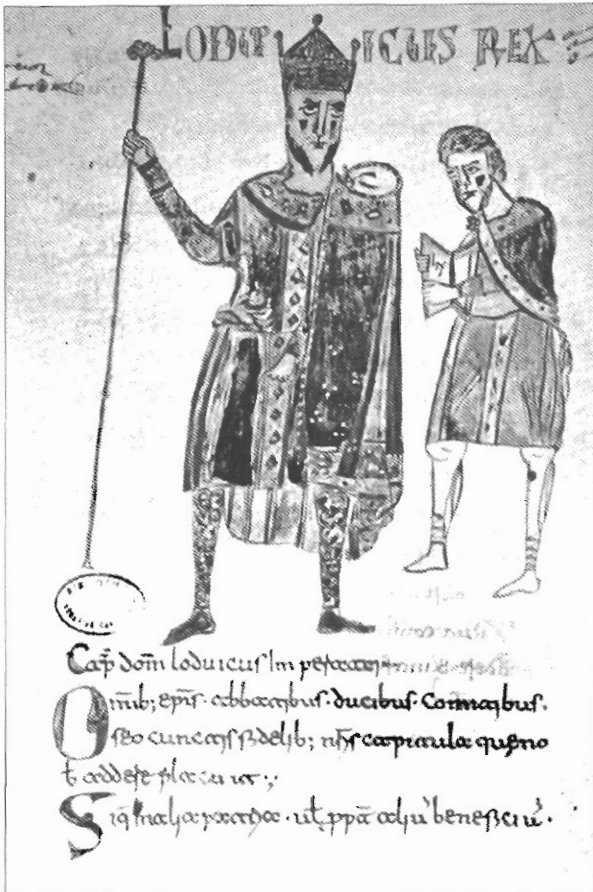 LODUTICUIS REX
Cap domi loduicus Imperator
Omib; epis · abbatibus · ducibus · Comitibus ·
seo cunctis fidelib; nris capitula que no
b addere placuit
Siq in alia patria · ul ppa aliu beneficiu ·